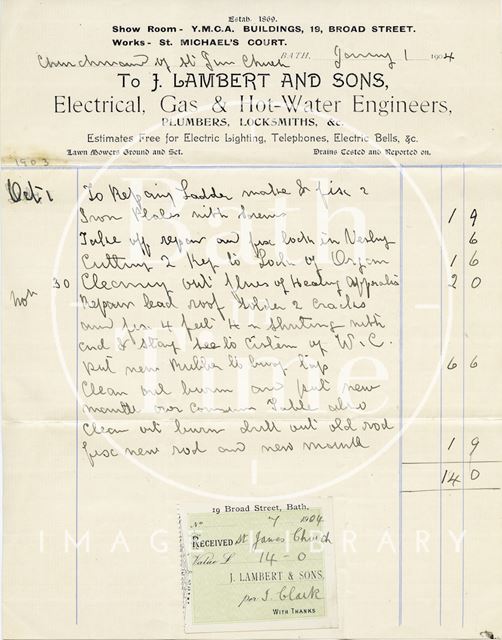 Estab. 1869.
Show Room - Y.M.C.A. BUILDINGS, 19, BROAD STREET.
Works - St. MICHAEL'S COURT.
BATH, 1 1904
of St Church
To J. LAMBERT AND SONS,
Electrical, Gas & Hot-Water Engineers,
PLUMBERS, LOCKSMITHS, &c.
Estimates Free for Electric Lighting, Telephones, Electric Bells, &c.
Lawn Mowers Ground and Set. Drains Tested and Reported on.
1903
Oct 1 To Repairing Ladder make & fix 2
Iron Plates with Screws 1 9
Take off repair and fix lock in Vestry 6
Cutting 2 Keys to Lock of Organ 1 6
30 Cleaning out flues of Heating Apparatus 2 0
Nov Repair lead roof solder 2 cracks
and fix 4 feet 4 in with
and & stay to Cistern of W.C.
put new Rubber to tap 6 6
Clean out burner and put new
mantle over Communion Table also
Clean out burner drill out old rod
fix new rod and new mantle 1 9
14 0
19 Broad Street, Bath.
No 7 1904
RECEIVED St James Church
Value £ 14-0
J. LAMBERT & SONS,
per J. Clark
WITH THANKS
Bath
in
Time
IMAGE FROM